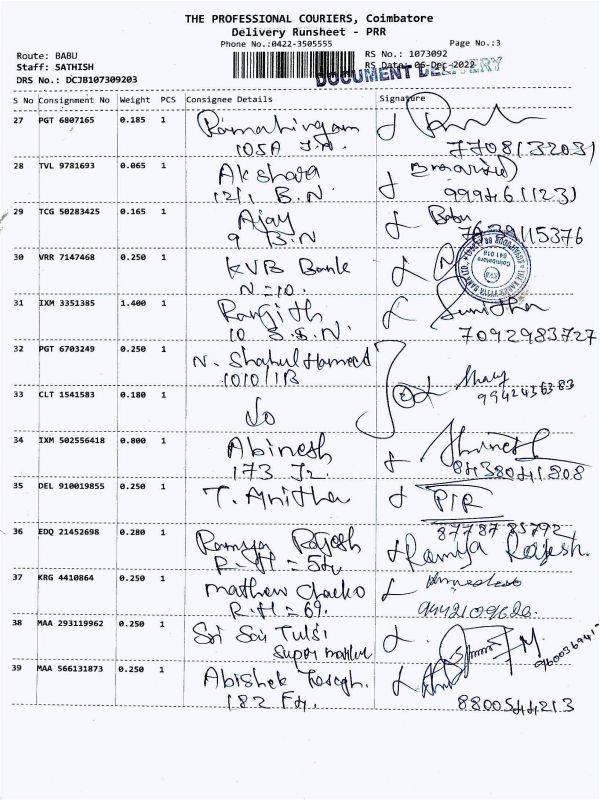 THE PROFESSIONAL COURIERS, Coimbatore
Delivery Runsheet - PRR
Phone No.:0422-3505555 Page No.:3
Route: BABU RS No.: 1073092
Staff: SATHISH RS Date: 06-Dec-2022
DRS No.: DCJB107309203 DOCUMENT DELIVERY
S No Consignment No Weight PCS Consignee Details Signature
27 PGT 6807165 0.185 1 Ramalingam
105A 7708132031
28 TVL 9781693 0.065 1 Akshara
121, B.N 9994611231
29 TCG 50283425 0.165 1 Ajay Babu
9 B.N 7639115376
30 VRR 7147468 0.250 1 KVB Bank
N = 10.
31 IXM 3351385 1.400 1 Ranjith Sunitha
10 S.S.N. 7092983727
32 PGT 6703249 0.250 1 N. Shahul Hameed
1010/1B
33 CLT 1541583 0.180 1 Do 9942436383
34 IXM 502556418 0.800 1 Abinesh
173 8438041808
35 DEL 910019855 0.250 1 T. Anitha PIR
36 EDQ 21452698 0.280 1 Ramya Rajesh 87787 85792
R.H = 54 Ramya Rajesh.
37 KRG 4410864 0.250 1 Mathew Chacko
R.H = 69. 9442109620.
38 MAA 293119962 0.250 1 Sri Sai Tulsi
Super market 09600369417
39 MAA 566131873 0.250 1 Abishek Joseph.
182 8800544213